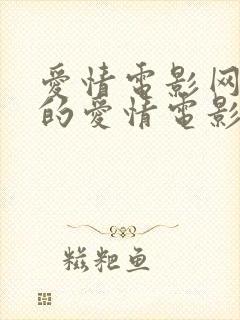 愛情電影网
的愛情電影
糍粑鱼